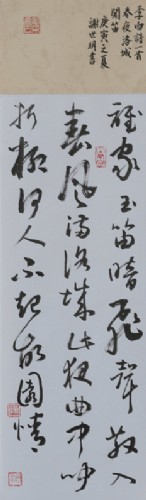 李白詩一首
春夜洛城
聞笛
庚寅之夏
謝世明書
誰家玉笛暗飛聲散入
春風滿洛城此夜曲中聞
折柳何人不起故園情